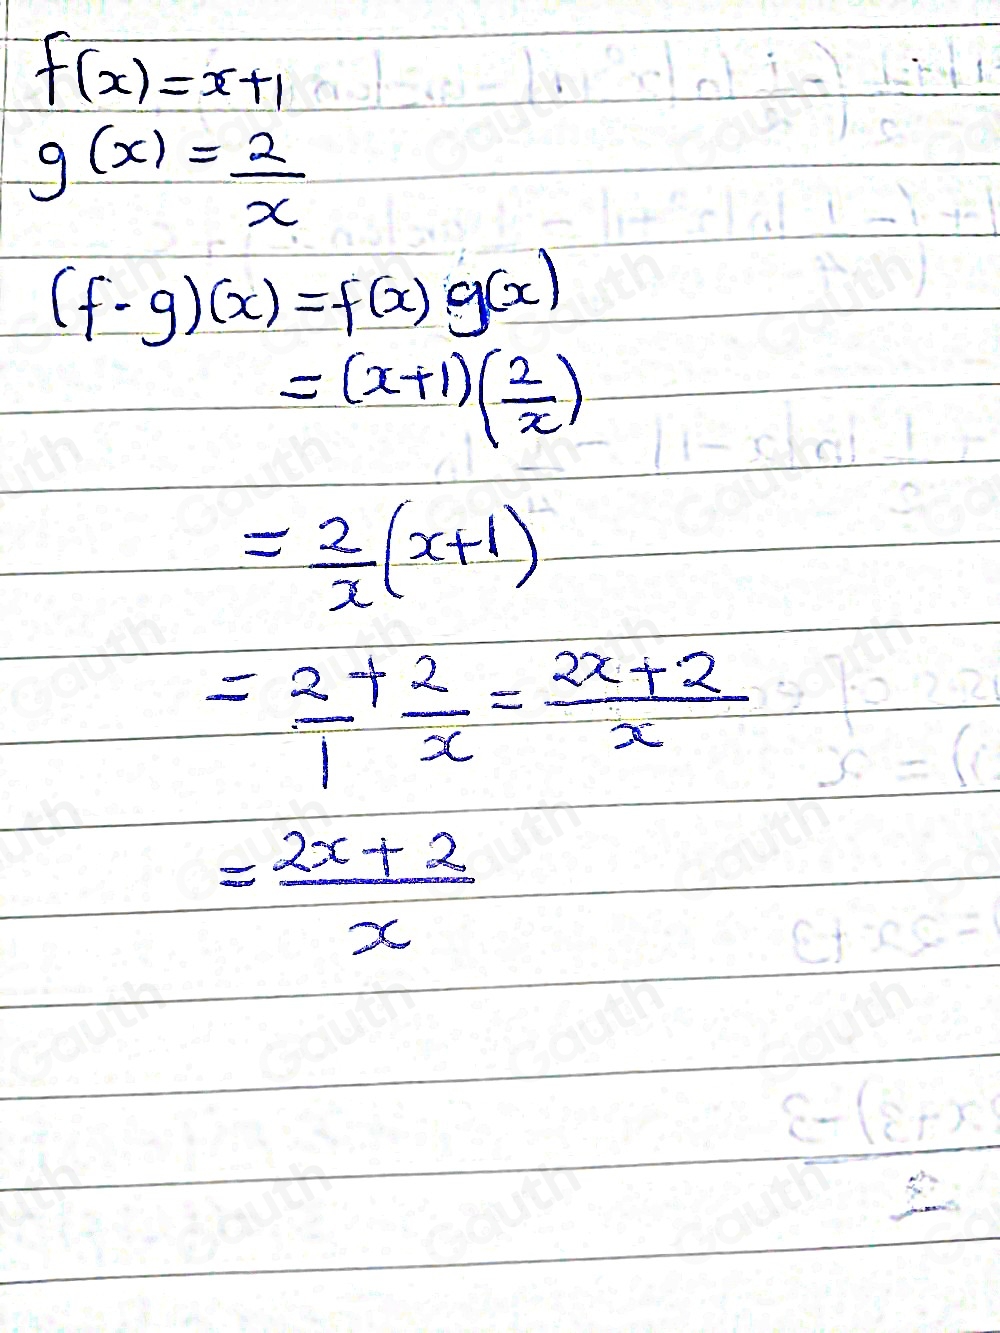 f(x) = x+1
g(x) = 2/x
(f-g)(x) = f(x) g(x)
= (x+1)(2/x)
= 2/x (x+1)
= 2/1 + 2/x = (2x+2)/x
= (2x+2)/x